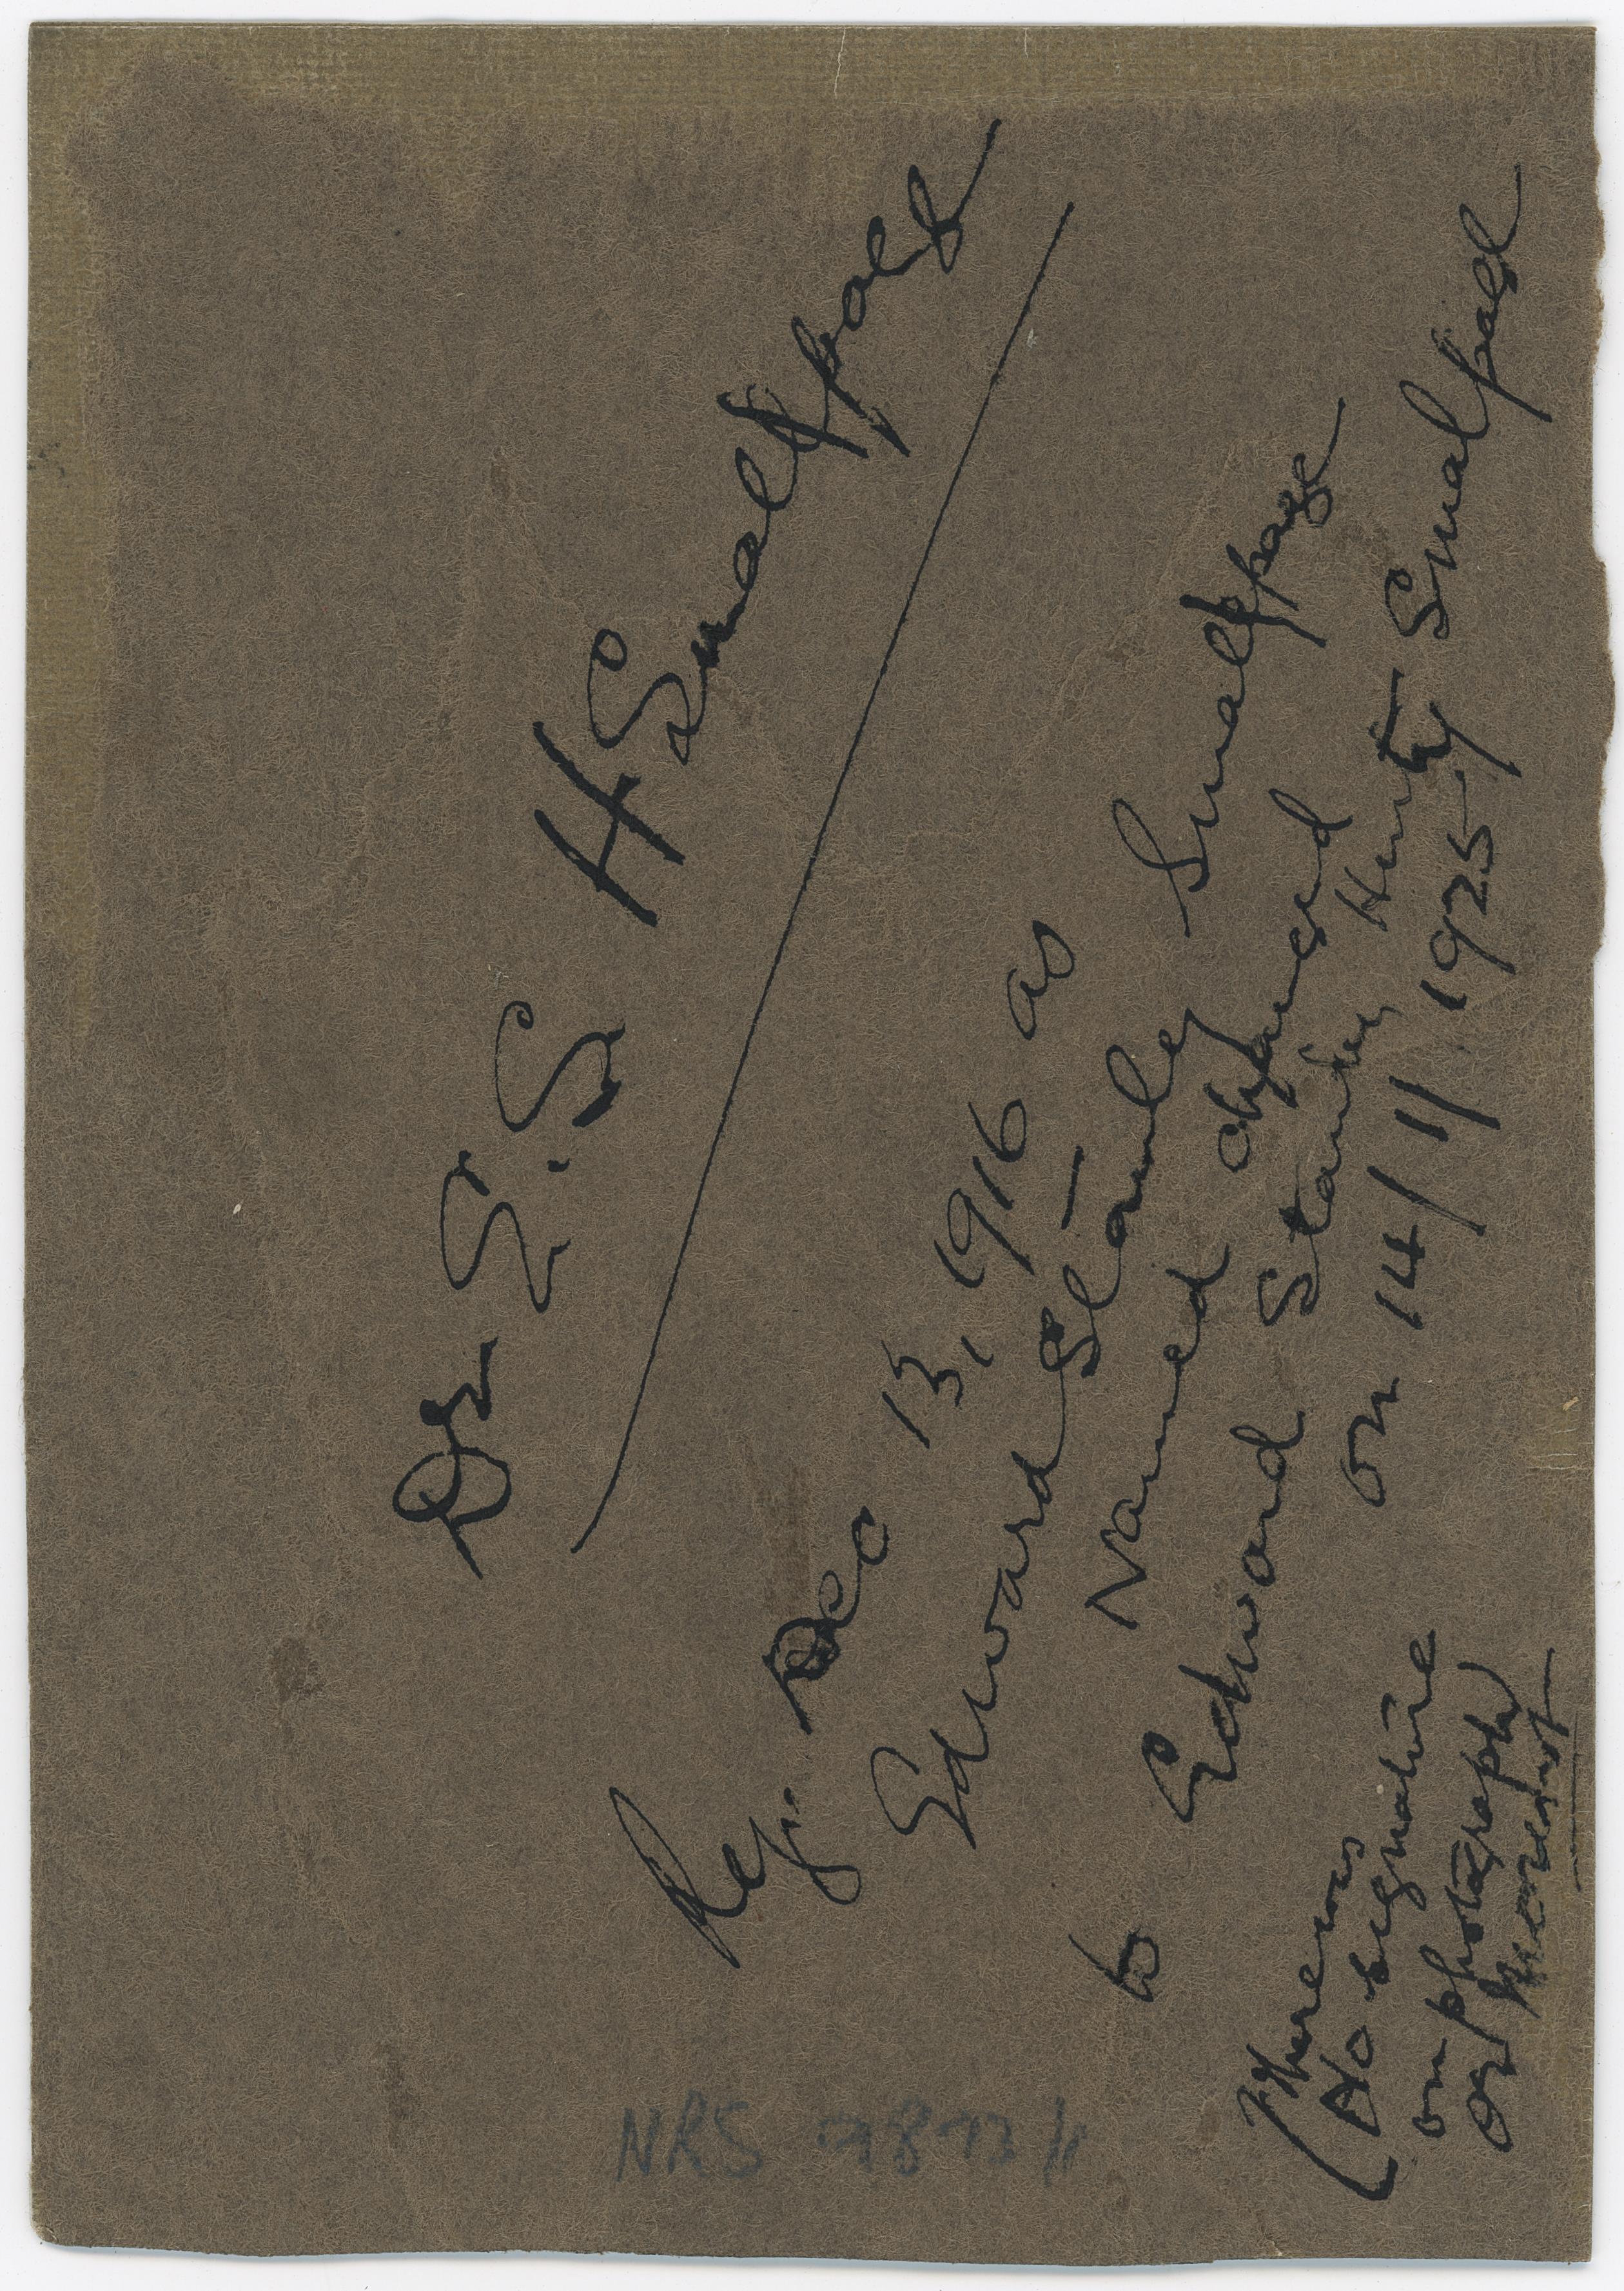 Dr E. S. H Smallpage
Reg. Dec 13, 1916 as
Edward Stanley Smallpage
Named changed
to Edward Stanley Hunty Smalpage
on 14/11/1925
(There was
No signature
on photograph
or
NRS